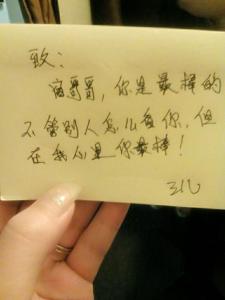 致：
哥哥，你是最棒的
不管别人怎么看你，但
在我心里你最棒！